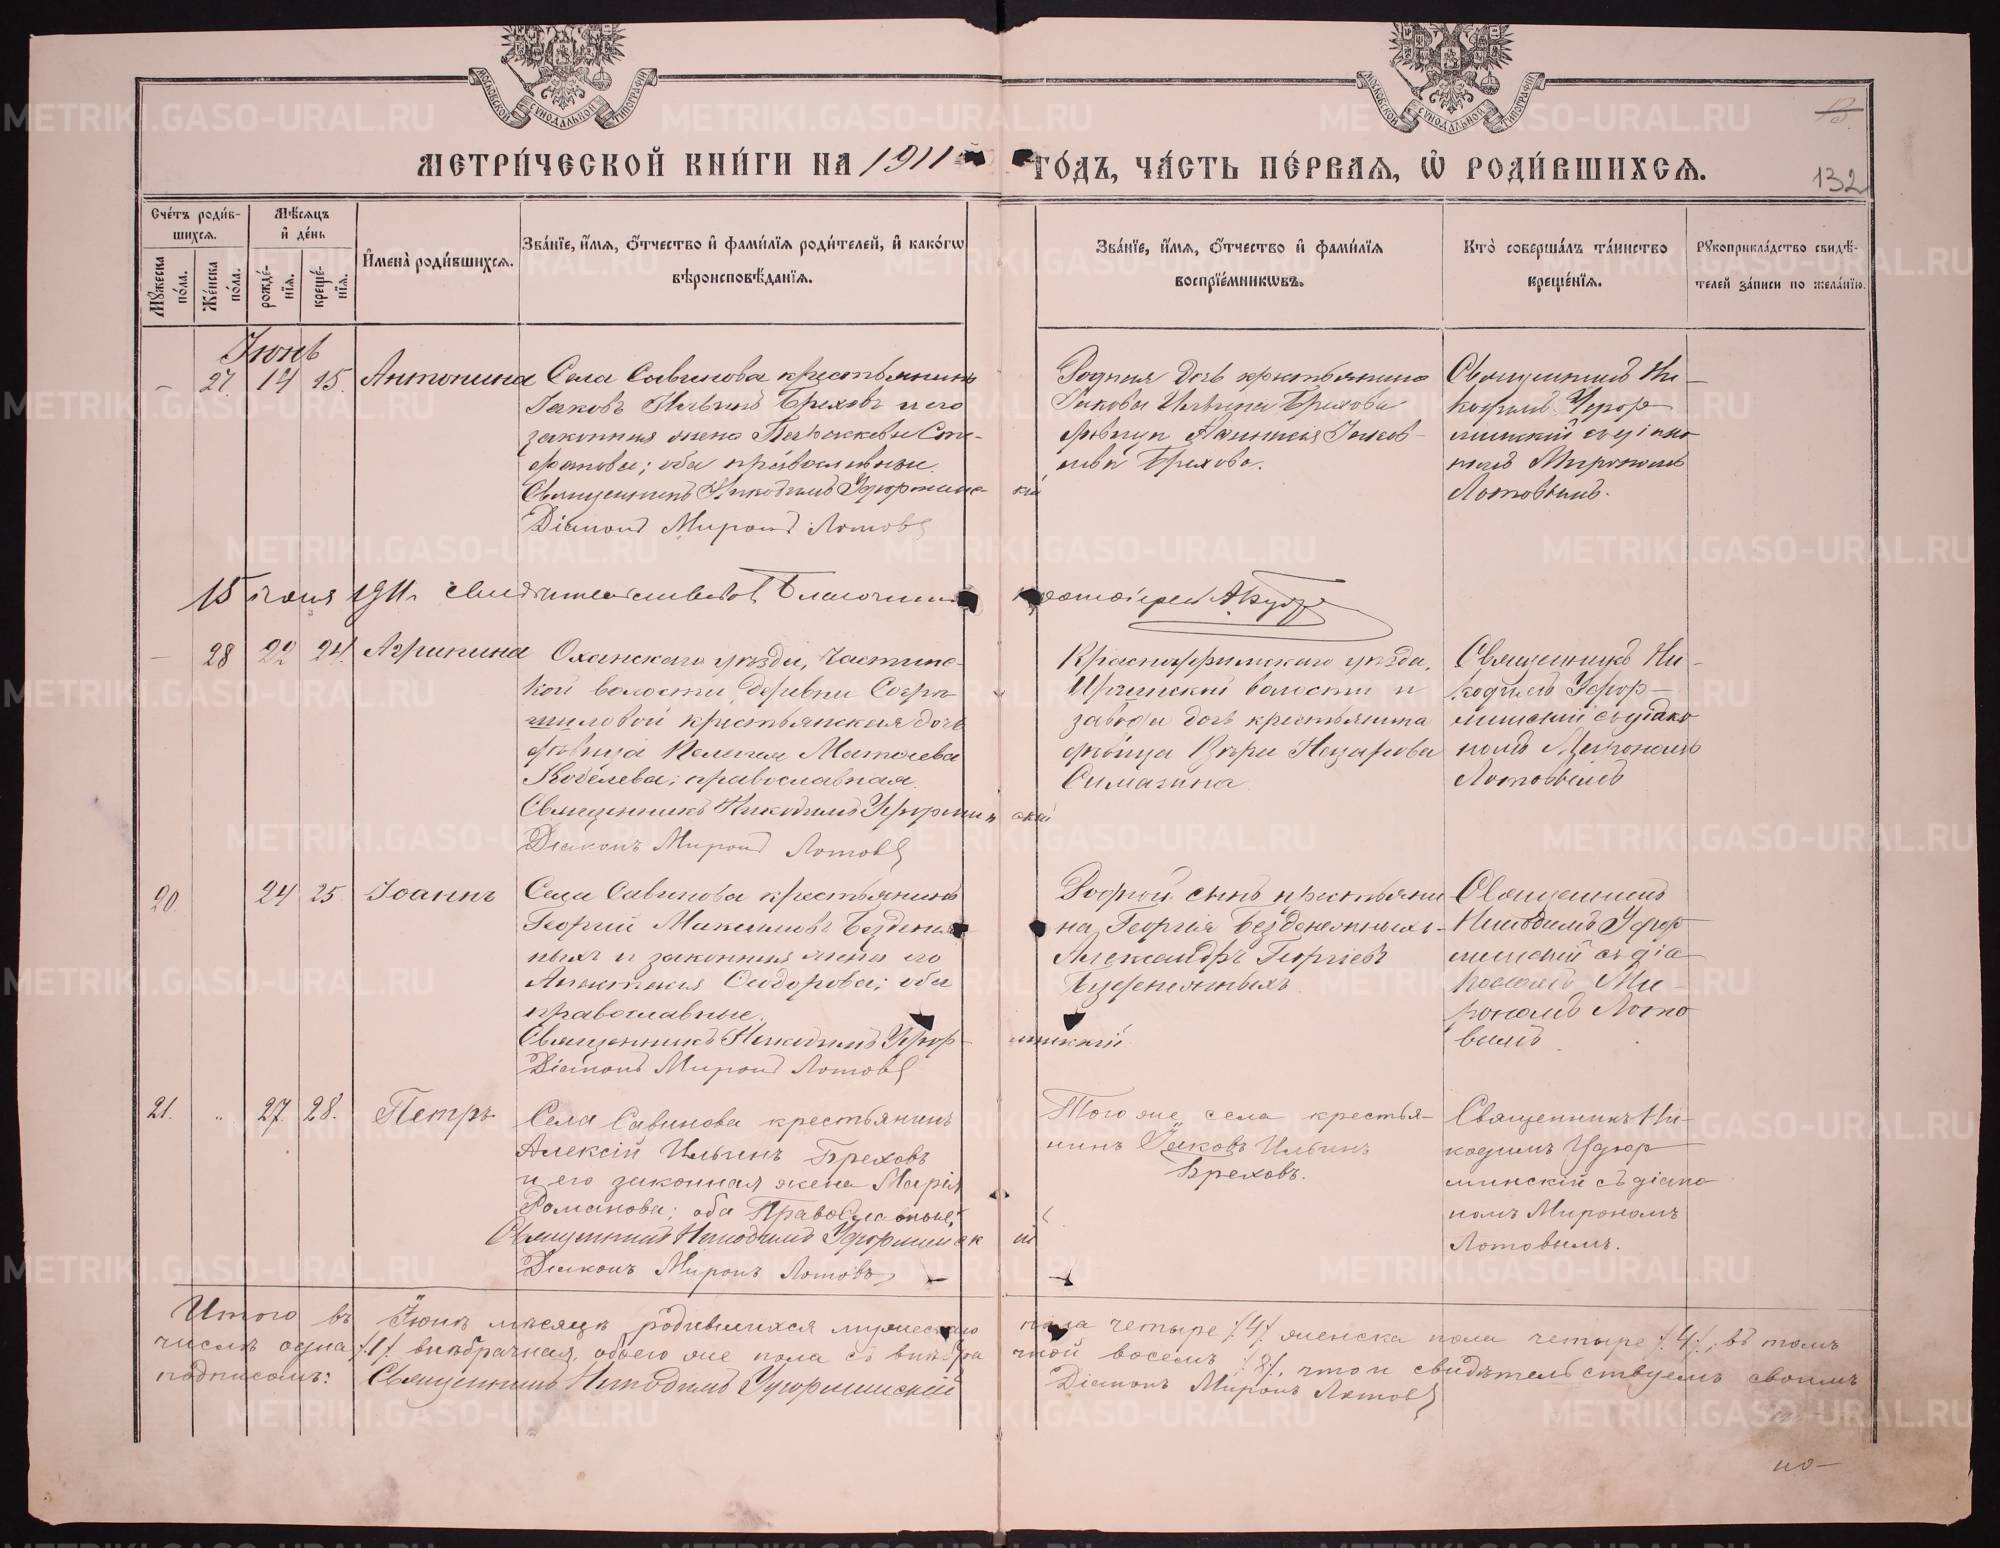 МЕТРИ́ЧЕСКОЙ КНИ́ГИ НА 1911 ГО́ДЪ, ЧА́СТЬ ПЕ́РВАѦ, Ѡ҆ РОДИ́ВШИХСѦ.
132
Сче́тъ роди́в-
шихсѧ.
Мꙋ́жеска по́ла.
Же́нска по́ла.
Мѣ́сѧцъ и҆ де́нь
рожде́-
нїѧ.
креще́-
нїѧ.
И҆мена̀ роди́вшихсѧ.
Зва́нїе, и҆́мѧ, ѻ҆́тчество и҆ фами́лїѧ роди́телей, и҆ како́гѡ
вѣроисповѣ́данїѧ.
Зва́нїе, и҆́мѧ, ѻ҆́тчество и҆ фами́лїѧ
воспрїе́мникѡвъ.
Кто̀ соверша́лъ та́инство
креще́нїѧ.
Рꙋкоприкла́дство свидѣ́-
телей за́писи по жела́нїю.
Іюнь
– 27. 14 15. Антонина
Села Савинова крестьянинъ
Іаковъ Ильинъ Бреховъ и его
законная жена Параскева Сте-
фанова; оба православные.
Священникъ Никодимъ Удюрминскій
Діаконъ Миронъ Лотовъ
Родная дочь крестьянина
Іакова Ильина Брехова
дѣвица Іаков-
лева Брехова.
Священникъ Ни-
кодимъ Удюр-
минскій съ діако
номъ Мирономъ
Лотовымъ.
15 іюня 1911 г. свидѣтельствовалъ Благочинный Протоіерей
– 28 22 24. Агрипина
Оханскаго уѣзда, Частинс-
кой волости, деревни
крестьянская дочь
дѣвица Пелагія Матѳиева
Кобелева; православная.
Священникъ Никодимъ Удюрминскій
Діаконъ Миронъ Лотовъ
Красноуфимскаго уѣзда,
Иргинской волости и
завода дочь крестьянина
дѣвица Вѣра Назарова
Симагина.
Священникъ Ни-
кодимъ Удюр-
минскій съ діако
номъ Мирономъ
Лотовымъ
20 24 25 Іоаннъ
Села Савинова крестьянинъ
Георгій Максимовъ Безденеж
ныхъ и законная жена его
Анастасія Сидорова; оба
православные.
Священникъ Никодимъ Удюрминскій
Діаконъ Миронъ Лотовъ
Родной сынъ крестьяни
на Георгія Безденежныхъ-
Александръ Георгіевъ
Безденежныхъ.
Священникъ
Никодимъ Удюр
минскій съ діа
кономъ Ми-
рономъ Лото
вымъ.
21. „ 27. 28. Петръ
Села Савинова крестьянинъ
Алексій Ильинъ Бреховъ
и его законная жена Марія
Романова; оба Православные.
Священникъ Никодимъ Удюрминскій
Діаконъ Миронъ Лотовъ
Того же села крестья-
нинъ Іаковъ Ильинъ
Бреховъ.
Священникъ Ни-
кодимъ Удюр
минскій съ діако
номъ Мирономъ
Лотовымъ.
Итого въ Іюнѣ мѣсяцѣ родившихся мужескаго пола четыре /4/. женска пола четыре /4/; въ томъ
числѣ одна /1/ внѣбрачная, обоего же пола съ внѣбрачной восемь /8/, что и свидѣтельствуемъ своимъ
подписомъ: Священникъ Никодимъ Удюрминскій Діаконъ Миронъ Лотовъ
по-